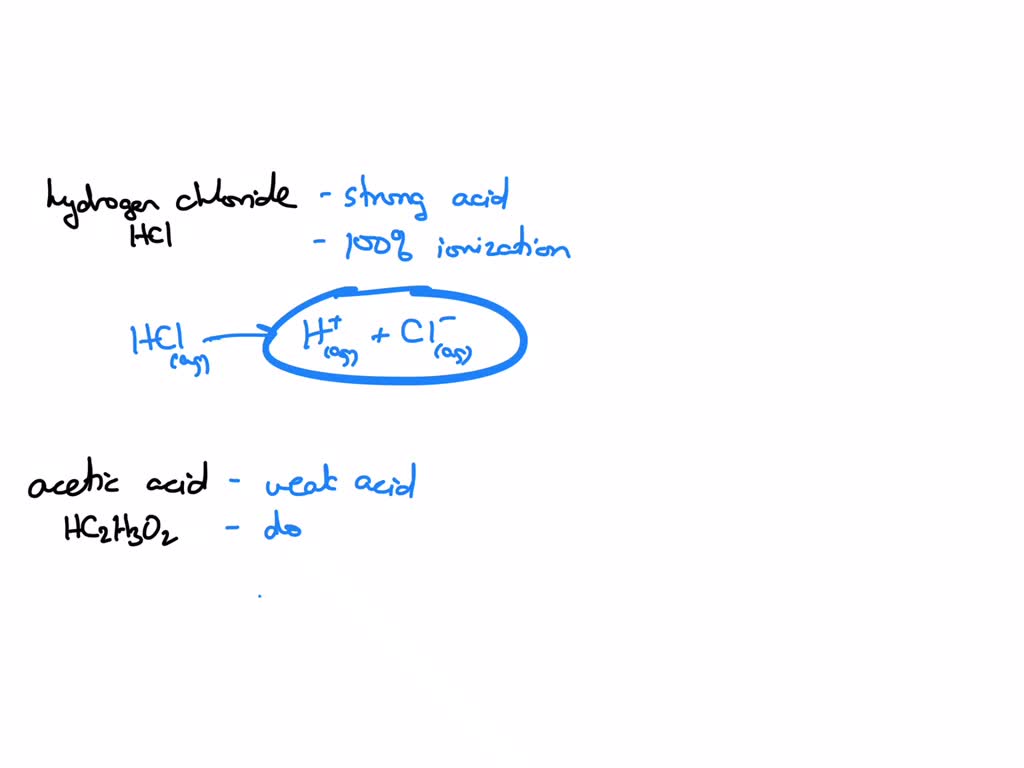 hydrogen chloride - strong acid
HCl - 100% ionization
HCl(aq) → H⁺(aq) + Cl⁻(aq)
acetic acid - weak acid
HC₂H₃O₂ - do